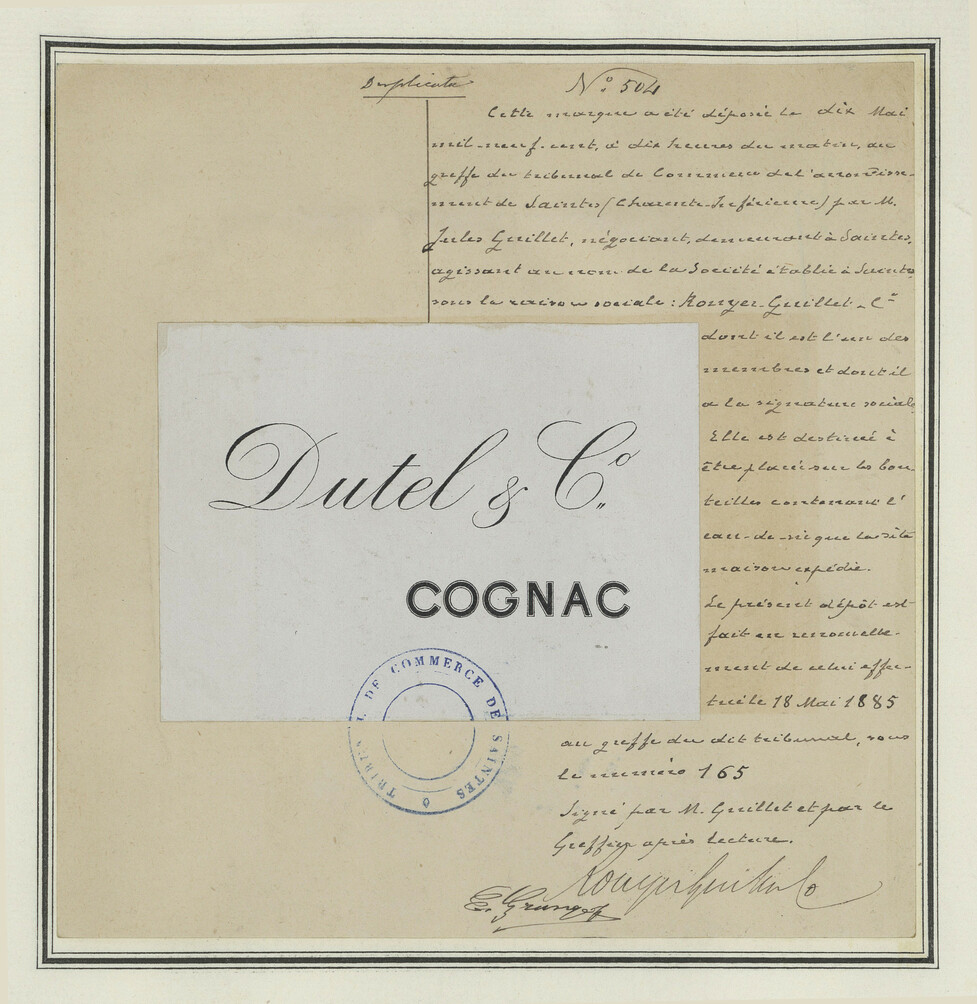 Duplicata
N° 504
Cette marque a été déposée le dix Mai
mil-neuf-cent, à dix heures du matin, au
greffe du tribunal de Commerce de l'arrondisse-
ment de Saintes (Charente-Inférieure) par M.
Jules Guillet, négociant, demeurant à Saintes,
agissant au nom de la Société établie à Saintes
sous la raison sociale : Rouyer-Guillet & Cie
dont il est l'un des
membres et dont il
a la signature sociale
Elle est destinée à
être placée sur les bou
teilles contenant l'
eau-de-vie que la dite
maison expédie.
Le présent dépôt est
fait en renouvelle-
ment de celui effec-
tué le 18 Mai 1885
au greffe du dit tribunal, sous
le numéro 165
Signé par M. Guillet et par le
Greffier après lecture.
Rouyer Guillet & Co
Dutel & Co.
COGNAC
TRIBUNAL DE COMMERCE DE SAINTES